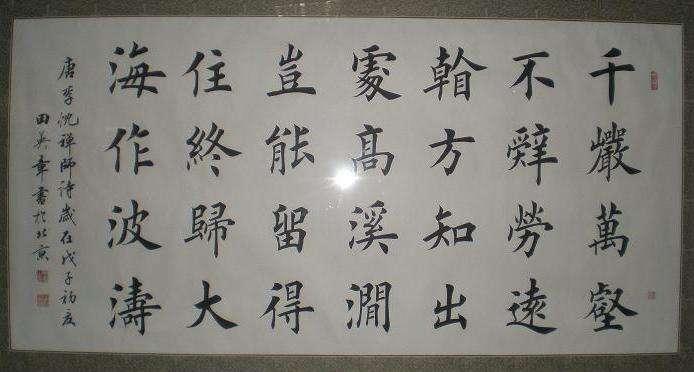 千巖萬壑
不辭勞遠
看方知出
處高溪澗
豈能留得
住終歸大
海作波濤
唐李忱禪師詩歲在戊子初夏
田英章書於北京